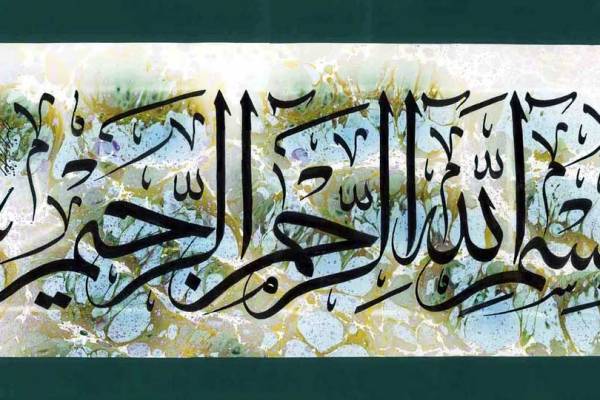 سم الله الرحمن الرحيم